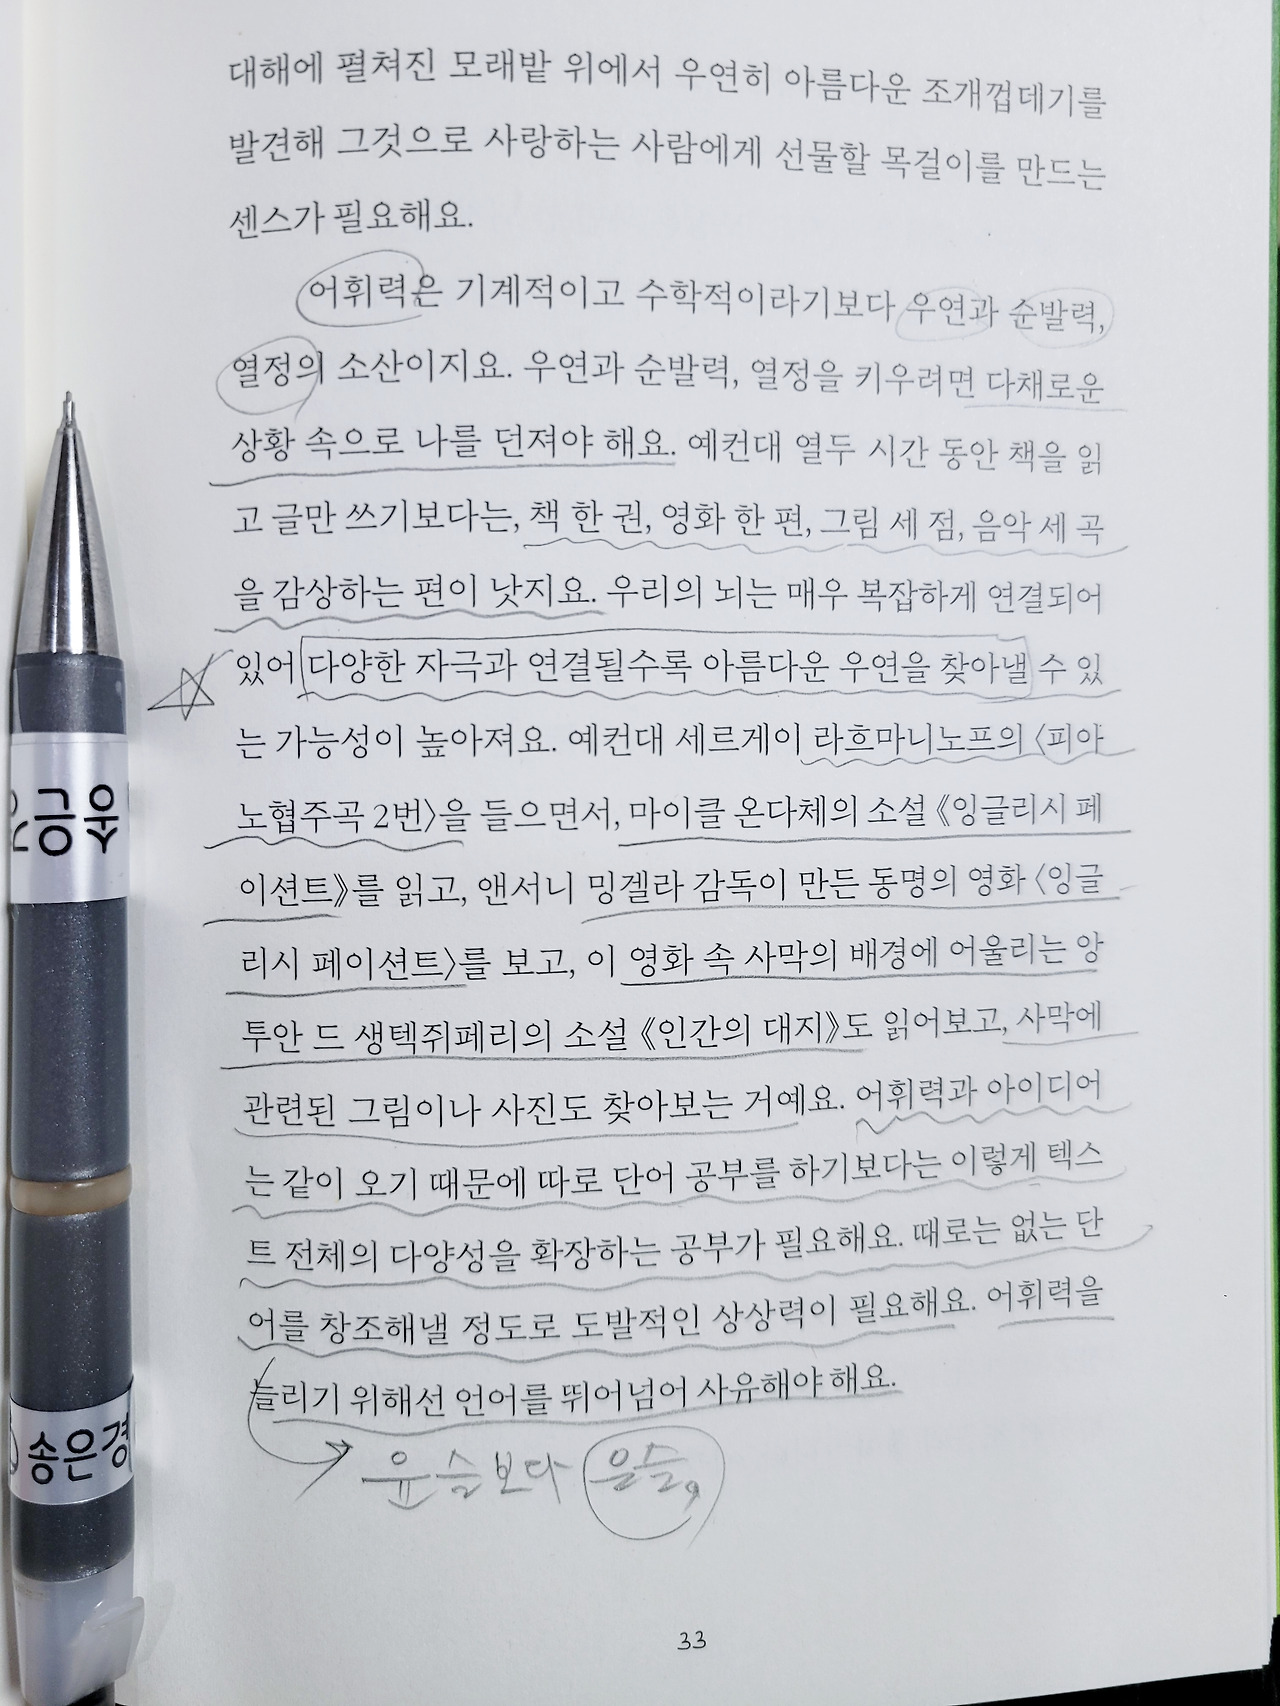 대해에 펼쳐진 모래밭 위에서 우연히 아름다운 조개껍데기를
발견해 그것으로 사랑하는 사람에게 선물할 목걸이를 만드는
센스가 필요해요.
어휘력은 기계적이고 수학적이라기보다 우연과 순발력,
열정의 소산이지요. 우연과 순발력, 열정을 키우려면 다채로운
상황 속으로 나를 던져야 해요. 예컨대 열두 시간 동안 책을 읽
고 글만 쓰기보다는, 책 한 권, 영화 한 편, 그림 세 점, 음악 세 곡
을 감상하는 편이 낫지요. 우리의 뇌는 매우 복잡하게 연결되어
있어 다양한 자극과 연결될수록 아름다운 우연을 찾아낼 수 있
는 가능성이 높아져요. 예컨대 세르게이 라흐마니노프의 〈피아
노협주곡 2번〉을 들으면서, 마이클 온다체의 소설 《잉글리시 페
이션트》를 읽고, 앤서니 밍겔라 감독이 만든 동명의 영화 〈잉글
리시 페이션트〉를 보고, 이 영화 속 사막의 배경에 어울리는 앙
투안 드 생텍쥐페리의 소설 《인간의 대지》도 읽어보고, 사막에
관련된 그림이나 사진도 찾아보는 거예요. 어휘력과 아이디어
는 같이 오기 때문에 따로 단어 공부를 하기보다는 이렇게 텍스
트 전체의 다양성을 확장하는 공부가 필요해요. 때로는 없는 단
어를 창조해낼 정도로 도발적인 상상력이 필요해요. 어휘력을
늘리기 위해선 언어를 뛰어넘어 사유해야 해요.
윤슬보다 은슬,
33
송은경